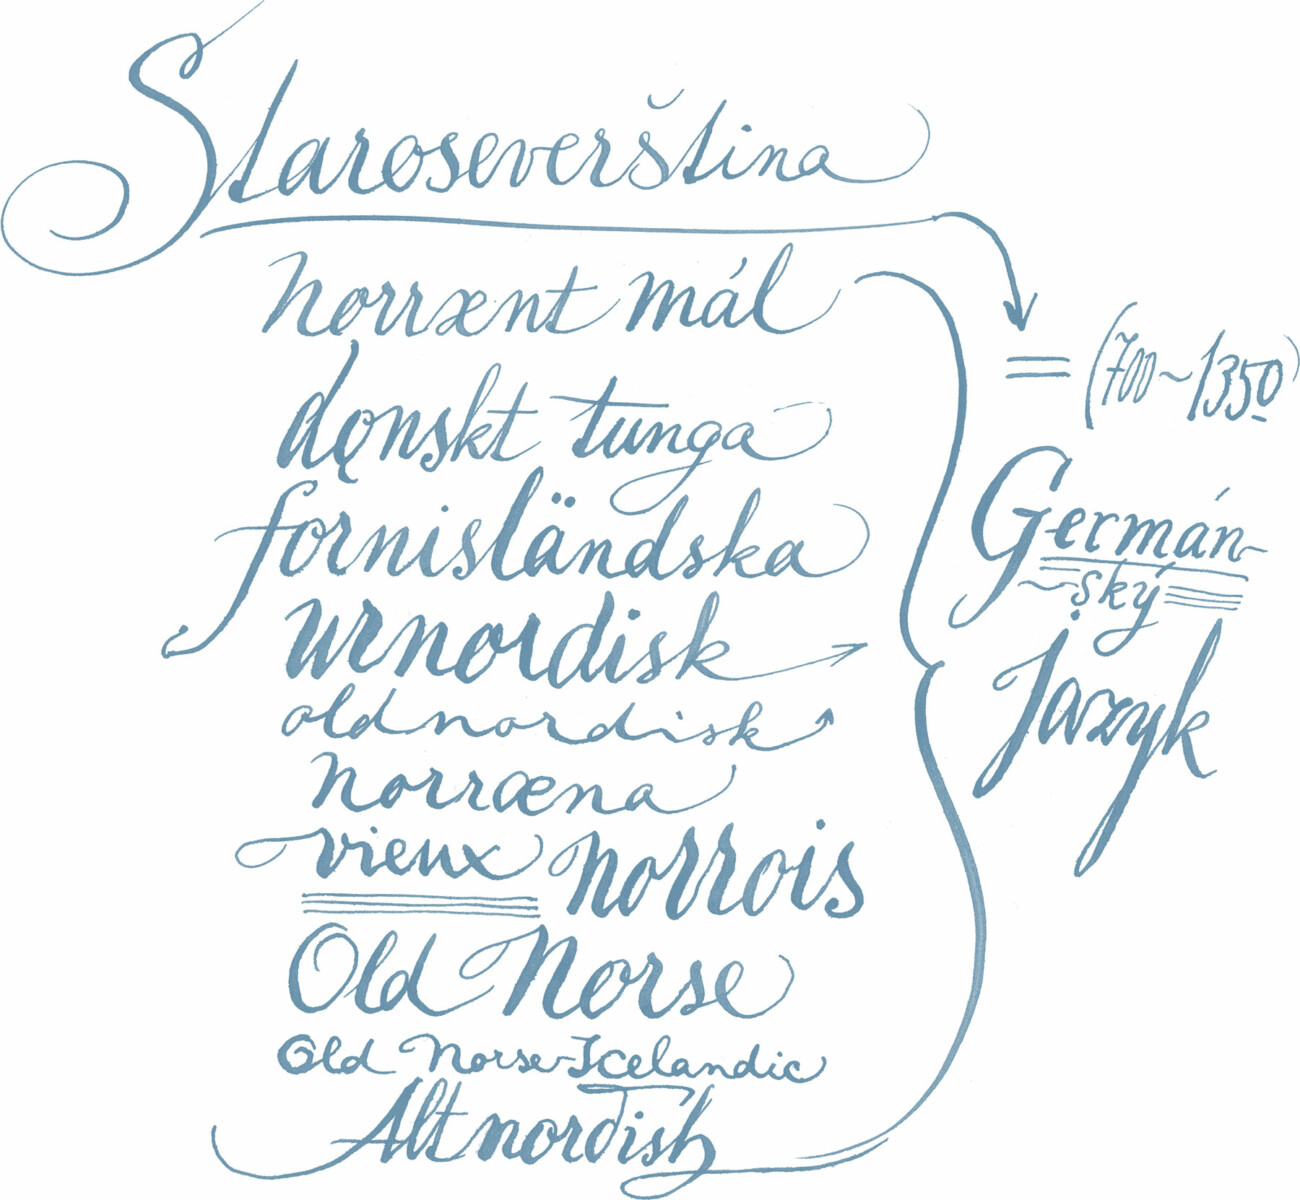 Staroseverština
norrœnt mál
dǫnskt tunga
fornisländska
urnordisk
oldnordisk
norrœna
vieux norrois
Old Norse
Old Norse-Icelandic
Altnordisch
= (700~1350)
Germán-
~ský
jazyk